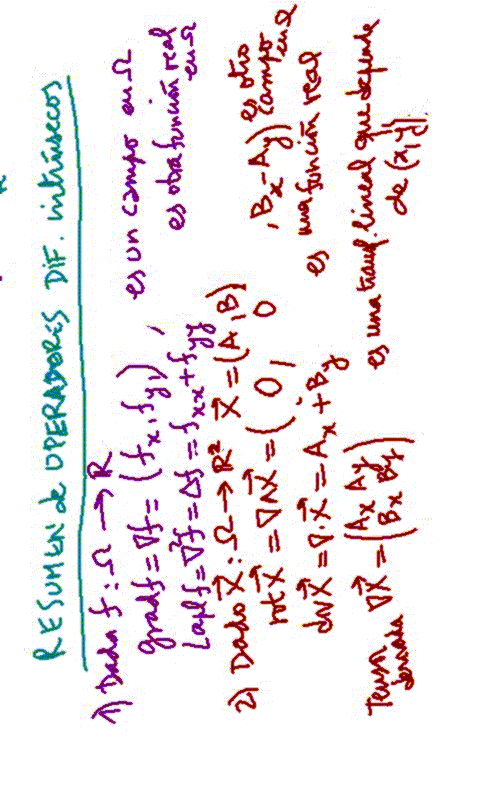 RESUMEN de OPERADORES DIF. intrínsecos
1) Dada f : Ω → R
grad f = ∇f = (fx, fy) , es un campo en Ω
Lapl f = ∇²f = Δf = fxx + fyy es otra función real en Ω
2) Dado X⃗ : Ω → R² X⃗ = (A, B)
rot X⃗ = ∇∧X⃗ = (0, 0, Bx - Ay) es otro campo en Ω
div X⃗ = ∇·X⃗ = Ax + By es una función real
Tensor derivada ∇X⃗ = (Ax Ay
Bx By) es una transf. lineal que depende de (x, y).